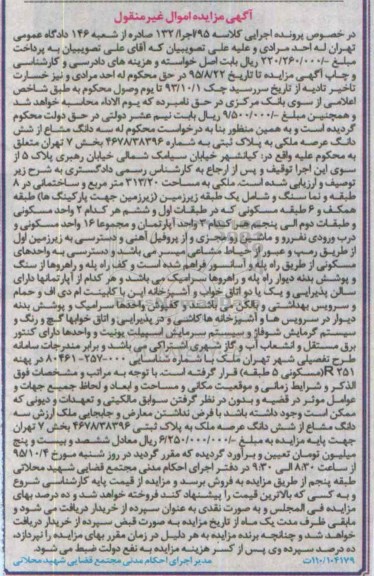 آگهی مزایده اموال غیر منقول
در خصوص پرونده اجرایی کلاسه ۷۹۵اجرا/۱۳۲ صادره از شعبه ۱۴۶ دادگاه عمومی
تهران له احد مرادی و علیه علی تصویبیان که آقای علی تصویبیان به پرداخت
مبلغ -/۲۲۰/۲۶۰/۰۰۰ ریال بابت اصل خواسته و هزینه های دادرسی و کارشناسی
و چاپ آگهی مزایده تا تاریخ ۹۵/۸/۲۲ در حق محکوم له احد مرادی و نیز خسارت
تاخیر تادیه از تاریخ سررسید چک ۹۳/۱۰/۱ تا یوم وصول محکوم به طبق شاخص
اعلامی از سوی بانک مرکزی در حق نامبرده که یوم الاداء محاسبه خواهد شد
و همچنین مبلغ -/۹/۵۰۰/۰۰۰ ریال بابت نیم عشر دولتی در حق دولت محکوم
گردیده است و به همین منظور بنا به درخواست محکوم له سه دانگ مشاع از شش
دانگ عرصه ملکی به پلاک ثبتی به شماره ۴۶۷۸/۳۸۳۹۶ بخش ۷ تهران متعلق
به محکوم علیه واقع در: کیانشهر خیابان سیامک شمالی خیابان رهبری پلاک ۵ از
سوی این اجرا توقیف و پس از ارجاع به کارشناس رسمی دادگستری به شرح زیر
توصیف و ارزیابی شده است. ملکی به مساحت ۳۱۳/۲۰ متر مربع و ساختمانی در ۸
طبقه و نما سنگ و شامل یک طبقه زیرزمین (زیرزمین جهت پارکینگ ها) طبقه
همکف و ۶ طبقه مسکونی که در طبقات اول و ششم هر کدام ۲ واحد مسکونی
و طبقات دوم الی پنجم هر کدام ۳ واحد آپارتمان و مجموعا ۱۶ واحد مسکونی و
درب ورودی نفررو و ماشین رو مجزی و از پروفیل آهنی و دسترسی به زیرزمین اول
از طریق رمپ و عبور از حیاط مشاعی میسر می باشد و دسترسی به واحدهای
مسکونی از طریق راه پله و آسانسور فراهم شده است و کف راه پله و راهروها از سنگ
و پوشش بدنه دیوار راه پله و راهروها سرامیک می باشد و هر کدام از آپارتمانها دارای
سالن پذیرایی و یک یا دو اتاق خواب و آشپزخانه اپن با کابینت ام دی اف و حمام
و سرویس بهداشتی و بالکن می باشد و کفپوش واحدها سرامیک و پوشش بدنه
دیوار در سرویس ها و آشپزخانه ها کاشی و در پذیرایی و اتاق خوابها گچ و رنگ و
سیستم گرمایش شوفاژ و سیستم سرمایش اسپیلت یونیت و واحدها دارای کنتور
برق مستقل و انشعاب آب و گاز شهری اشتراکی می باشد و برابر مندرجات سامانه
طرح تفصیلی شهر تهران ملک با شماره شناسایی ۰۰۰-۲۵۷-۸۰۴۶۱ در پهنه
R۲۵۱ (مسکونی ۵ طبقه) قرار گرفته است. با توجه به مراتب و مشخصات فوق
الذکر و شرایط زمانی و موقعیت مکانی و مساحت و ابعاد و لحاظ جمیع جهات و
عوامل موثر در قضیه و بدون در نظر گرفتن سوابق مالکیتی و تعهدات و دیونی که
ممکن است وجود داشته باشد با فرض نداشتن معارض و جابجایی ملک ارزش سه
دانگ مشاع از شش دانگ عرصه ملک به پلاک ثبتی ۴۶۷۸/۳۸۳۹۶ بخش ۷ تهران
جهت پایه مزایده به مبلغ -/۶/۲۵۰/۰۰۰/۰۰۰ ریال معادل ششصد و بیست و پنج
میلیون تومان تعیین و برآورد گردیده که مقرر گردید در روز شنبه مورخ ۹۵/۱۰/۴
از ساعت ۸:۳۰ الی ۹:۳۰ در دفتر اجرای احکام مدنی مجتمع قضایی شهید محلاتی
طبقه پنجم از طریق مزایده به فروش برسد و مزایده از قیمت پایه کارشناسی شروع
و به کسی که بالاترین قیمت را پیشنهاد کند فروخته خواهد شد و ده درصد بهای
مزایده فی المجلس و به صورت نقدی به عنوان سپرده از خریدار دریافت می شود و
مابقی ظرف مدت یک ماه از تاریخ مزایده به صورت قبض سپرده از خریدار دریافت
خواهد شد و چنانچه برنده مزایده به هر دلیل در زمان مقرر بهای مزایده را نپردازد،
ده درصد سپرده وی پس از کسر هزینه مزایده به نفع دولت ضبط می شود.
۱۱۰/۱۰۴۱۷۹ت
مدیر اجرای احکام مدنی مجتمع قضایی شهید محلاتی